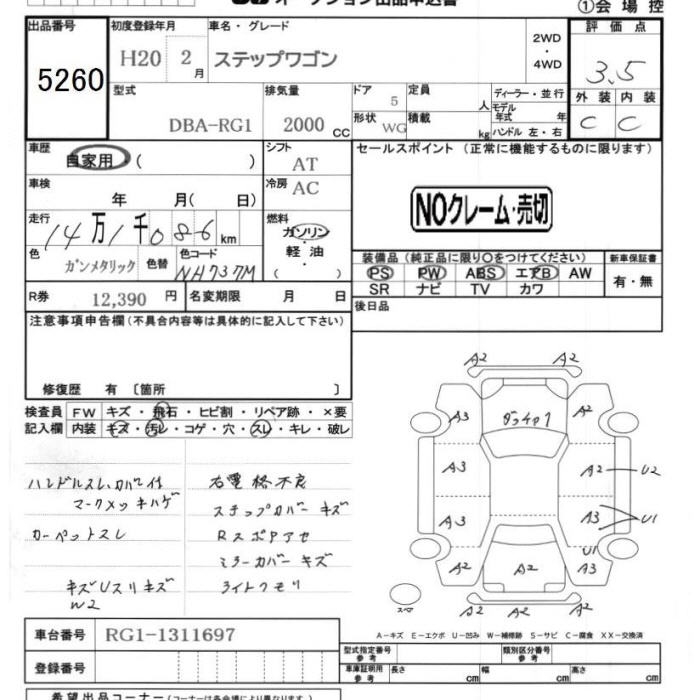 オークション出品申込書
①会場控
出品番号 初度登録年月 車名・グレード 評価点
5260 H20 2月 ステップワゴン 2WD・4WD 3.5
型式 排気量 ドア 定員 人 ディーラー・並行 外装 内装
DBA-RG1 2000cc 5 モデル年式 年 C C
形状 WG 積載 kg ハンドル 左・右
車歴 自家用 ( ) シフト AT セールスポイント (正常に機能するものに限ります)
車検 年 月( 日) 冷房 AC
NOクレーム・売切
走行 14万1千086km 燃料 ガソリン・軽油・( )
色 ガンメタリック 色替 色コード NH737M
装備品 (純正品に限り○をつけてください) 新車保証書
PS PW ABS エアB AW 有・無
SR ナビ TV カワ
R券 12,390円 名変期限 月 日 後日品
注意事項申告欄(不具合内容等は具体的に記入して下さい)
修復歴 有 〔箇所 〕
検査員 FW キズ・飛石・ヒビ割・リペア跡・×要
記入欄 内装 キズ・汚レ・コゲ・穴・スレ・キレ・破レ
ハンドルスレ、カバー付 右電格不良
マークメッキハゲ ステップカバーキズ
カーペットスレ RスポPアセ
ミラーカバーキズ
キズUスリキズ ライトクモリ
W2
A2 A2
A3 ガラスキア1 A2
A3 A2 U2
A3 A3 U1
U1
A2 A2 A3
スペア A2 A2
A-キズ E-エクボ U-凹み W-補修跡 S-サビ C-腐食 XX-交換済
車台番号 RG1-1311697
型式指定番号 参考 類別区分番号 参考
登録番号 車庫証明用 参考 長さ cm 幅 cm 高さ cm
希望出品コーナー(コーナーは各会場により異なります)